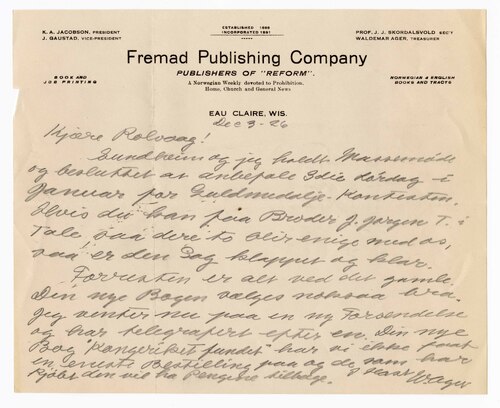 K. A. JACOBSON, PRESIDENT
J. GAUSTAD, VICE-PRESIDENT
ESTABLISHED 1886
INCORPORATED 1891
PROF. J. J. SKORDALSVOLD SEC'Y
WALDEMAR AGER, TREASURER
Fremad Publishing Company
PUBLISHERS OF "REFORM".
A Norwegian Weekly devoted to Prohibition,
Home, Church and General News
BOOK AND
JOB PRINTING
NORWEGIAN & ENGLISH
BOOKS AND TRACTS
EAU CLAIRE, WIS.
Dec 3 - 26
Kjære Rolvaag!
Sundheim og jeg holdt Massemöde
og besluttet at anbefale 3die Lördag i
Januar for Guldmedalje-Kontesten.
Hvis du kan faa Broder J. Jörgen T. i
Tale, saa dere to blir enige med os,
saa er den Sag klappet og klar.
Forresten er alt ved det gamle.
Din nye Bogen sælges noksaa bra.
Jeg venter nu paa en ny Forsendelse
og har telegrafert efter en. Din nye
Bog "Kongeriket fundet" har vi ikke faat
en eneste Bestilling paa og de, som har
kjöbt den vil ha Pengene tilbage.
W. Ager